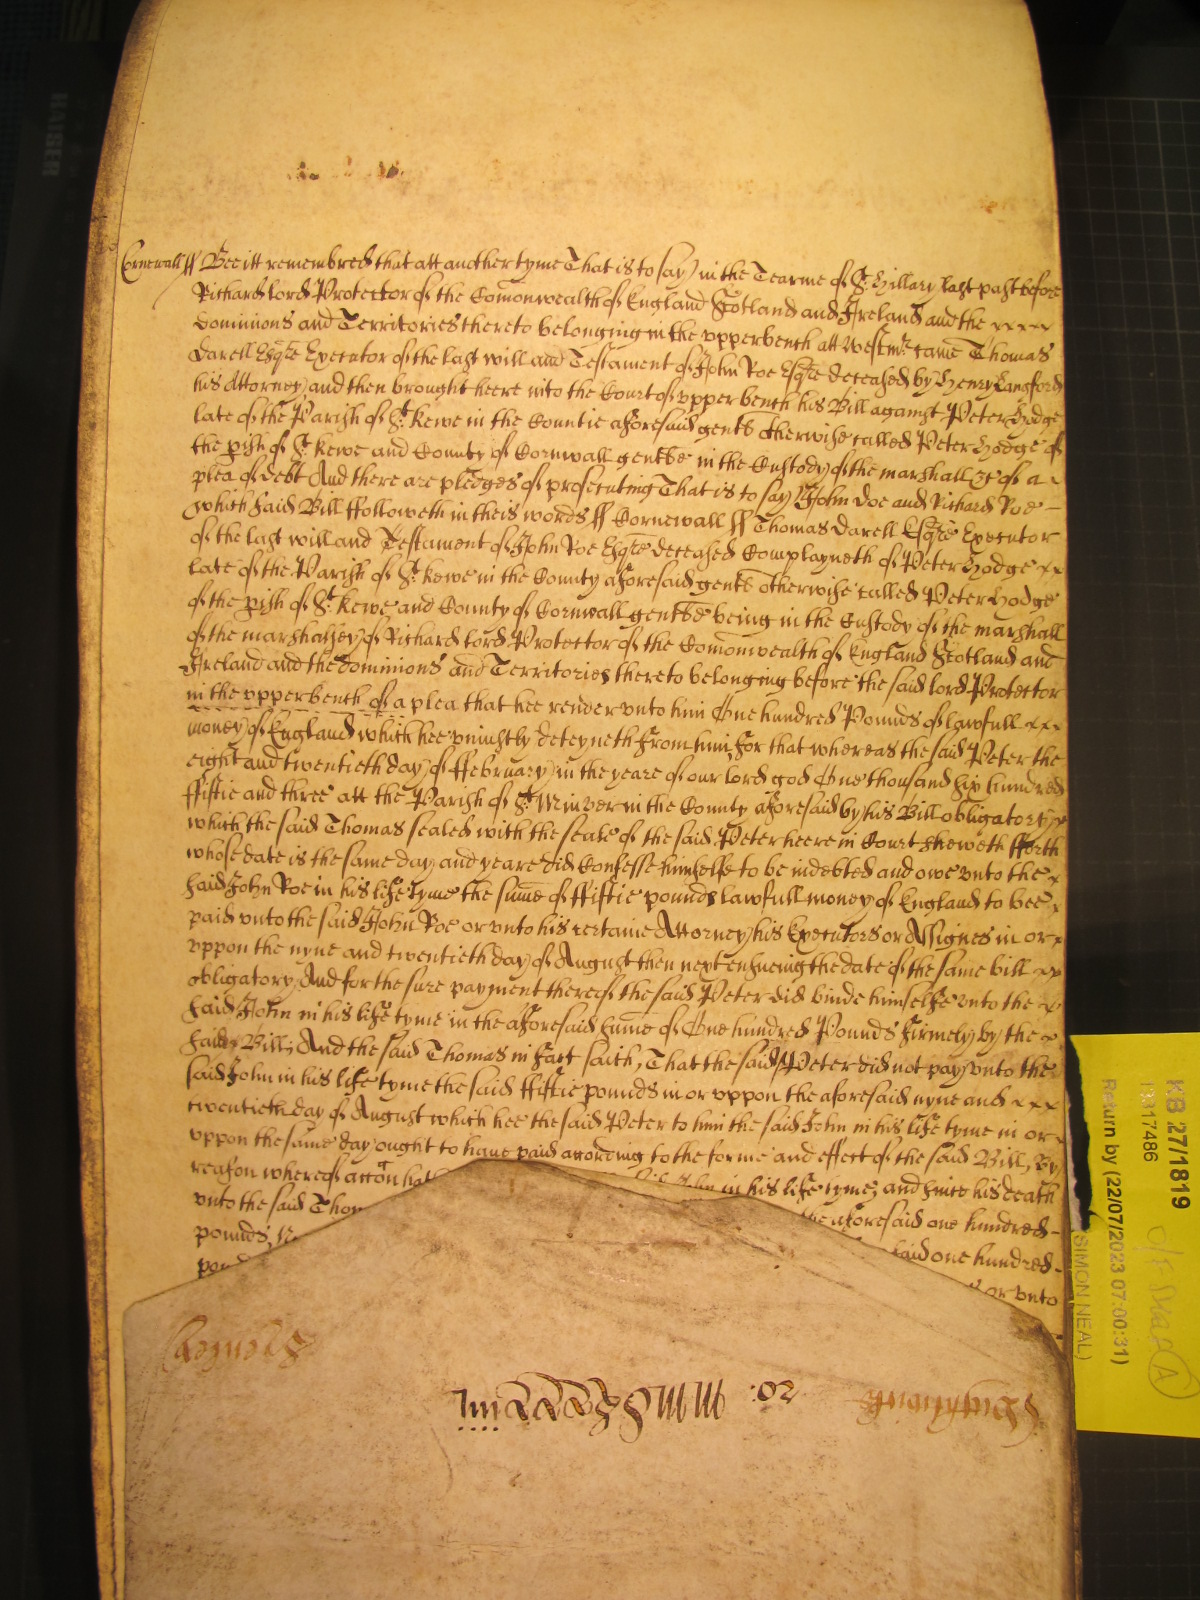 Cornewall ss Bee itt remembred that att another tyme That is to say in the Tearme of St. Hillary last past before
Richard lord Protector of the Comonwealth of England Scotland and Ireland and the
dominions and Territories thereto belonging in the upper bench att Westmr. came Thomas
Darell Esqre Executor of the last will and Testament of John Roe Esqre deceased by Henry Langford
his Attorney and then brought heere into the Court of upper bench his Bill against Peter Hodge
late of the Parish of St. Kewe in the Countie aforesaid gent otherwise called Peter Hodge of
the pish of St. Kewe and County of Cornwall gent in the Custody of the marshall &c of a
plea of debt And there are pledges of prosecuting That is to say John Doe and Richard Roe
which said Bill ffolloweth in theis words ss Cornewall ss Thomas Darell Esqre Executor
of the last will and Testament of John Roe Esqre deceased Complayneth of Peter Hodge
late of the Parish of St. Kewe in the County aforesaid gent otherwise called Peter Hodge
of the pish of St. Kewe and County of Cornwall gent being in the Custody of the marshall
of the marshalsey of Richard lord Protector of the Comonwealth of England Scotland and
Ireland and the dominions and Territories thereto belonging before the said lord Protector
in the upper bench of a plea that hee render unto him One hundred Pounds of lawfull
money of England which hee uniustly deteyneth from him, for that whereas the said Peter the
eight and twentieth day of ffebruary in the yeare of our lord god One thousand six hundred
ffiftie and three att the Parish of St. Minver in the County aforesaid by his Bill obligatory
which the said Thomas sealed with the seale of the said Peter heere in Court sheweth fforth
whose date is the same day and yeare did Confesse himselfe to be indebted and owe unto the
said John Roe in his life tyme the sume of ffiftie pounds lawfull money of England to bee
paid unto the said John Roe or unto his certaine Attorney his Executors or Assignes in or
uppon the nyne and twentieth day of August then next ensueing the date of the same bill
obligatory, And for the sure payment thereof the said Peter did binde himselfe unto the
said John in his life tyme in the aforesaid sume of One hundred Pounds firmely by the
said Bill, And the said Thomas in fact saith, That the said Peter did not pay unto the
said John in his life tyme the said ffiftie pounds in or uppon the aforesaid nyne and
twentieth day of August which hee the said Peter to him the said John in his life tyme in or
uppon the same day ought to have paid according to the forme and effect of the said Bill, By
reason whereof accon in his life tyme, and since his death
unto the said the aforesaid one hundred
pounds, said one hundred
or unto
KAISER
KB 27/1819
Return by (22/07/2023 07:00:31)
(SIMON NEAL)
A